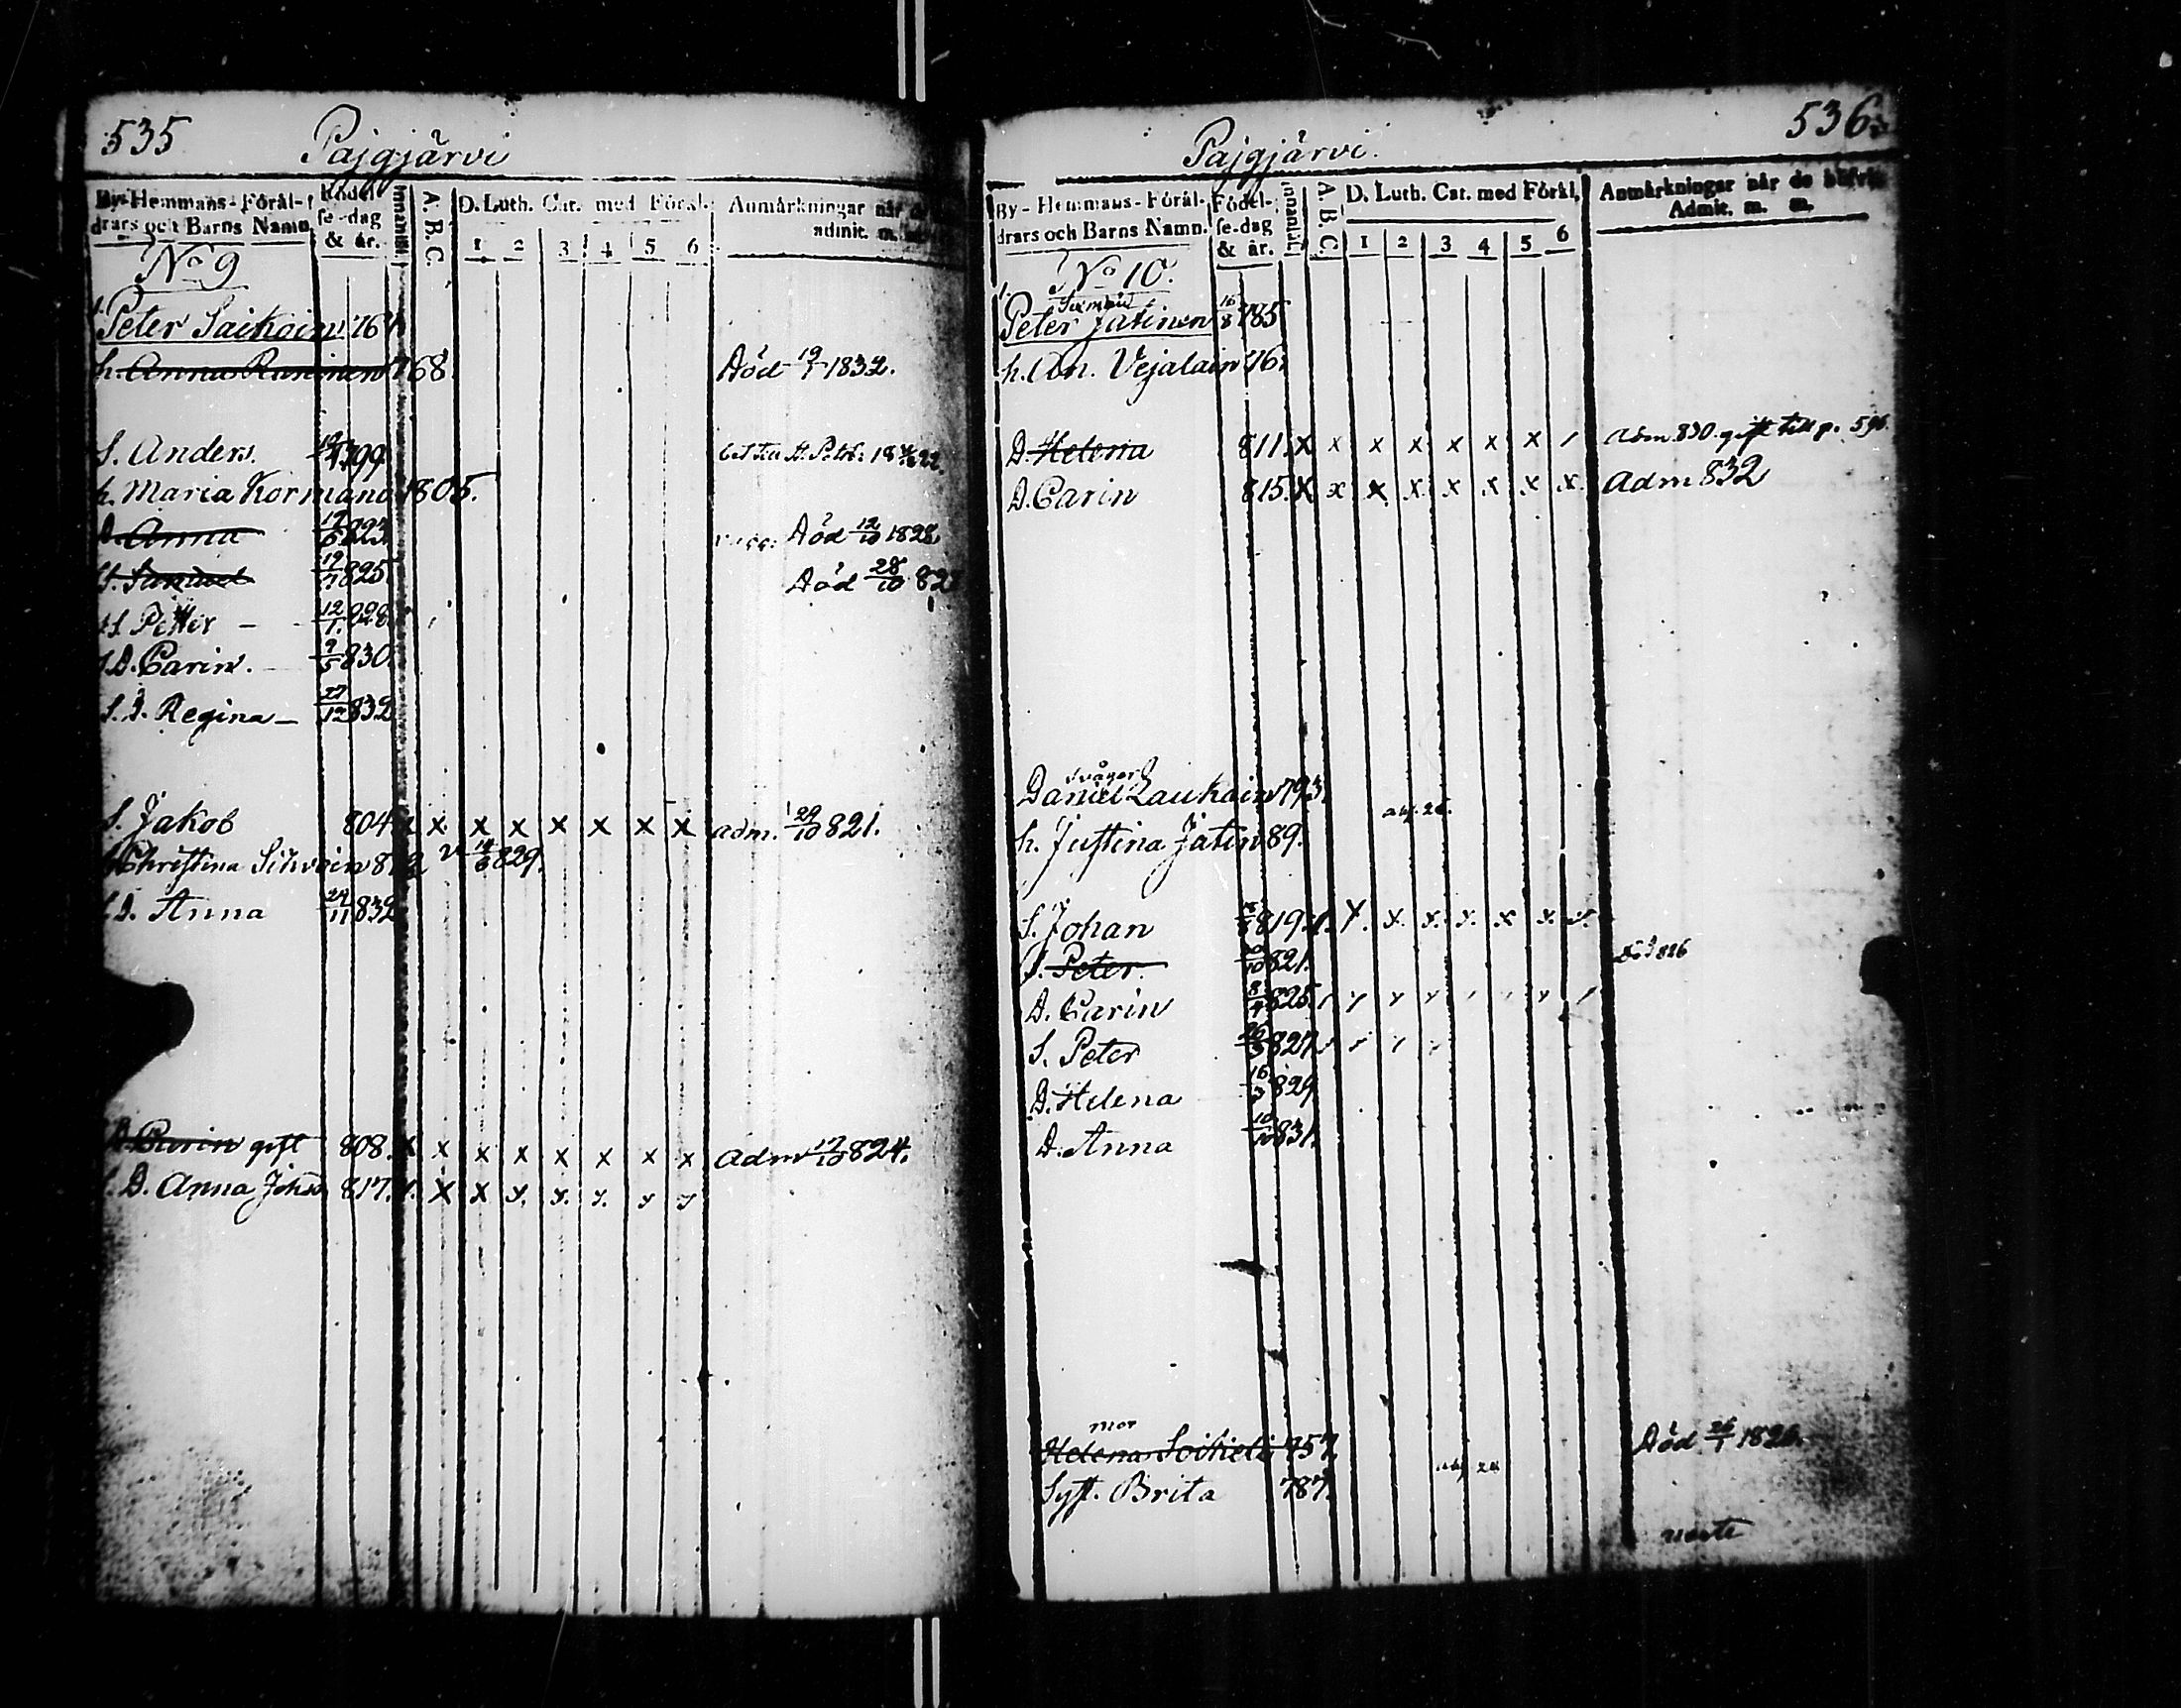 535
Pajgjärvi
By- Hemmans- Föräl-
drars och Barns Namn.
Födel-
se-dag
& år.
Innantill
A. B. C.
D. Luth. Cat. med Förkl.
1 2 3 4 5 6
Anmärkningar når
admit. m.
No 9
1.
Peter Saikain 764
h. Anna Raninen 768. Död 19/1 1832.
S. Anders. 1799
h. Maria Kormana 1805.
D. Anna 823 Död 12/10 1828
S. Samuel 825 Död 28/10 82
S. Petter 12/1. 828
S.D. Carin. 9/5 830.
S.D. Regina 27/12 832
S. Jakob 804 x x. x x x x x x adm. 29/10 821.
h. Christina Sihvoin 8 v 829.
S.D. Anna 24/11 832
D. Carin gift 808. x x x x x x x x adm 17/10 824.
S. D. Anna 817. x x
536
Pajgjärvi.
By- Hemmans- Föräl-
drars och Barns Namn.
Födel-
se-dag
& år.
Innantill
A. B. C.
D. Luth. Cat. med Förkl.
1 2 3 4 5 6
Anmärkningar når de
Admit. m. m.
No 10.
1.
Peter Jatinen 16/8 785
h. An. Vejalain 76
D. Helena 811. x x x x x x x / adm 830. gift till p. 596
D. Carin 815. x x x x x x x x. adm 832
svåger
Daniel Laukain 793.
h. Justina Jatin 89.
S. Johan 819.
S. Peter. 821. död 826
D. Carin 8/4 825.
S. Peter 827.
D. Helena 16/3 829
D. Anna 10/10 831.
mor
Helena Soikeli 757. Död 26/1 1826.
Syst. Brita 787.
verte